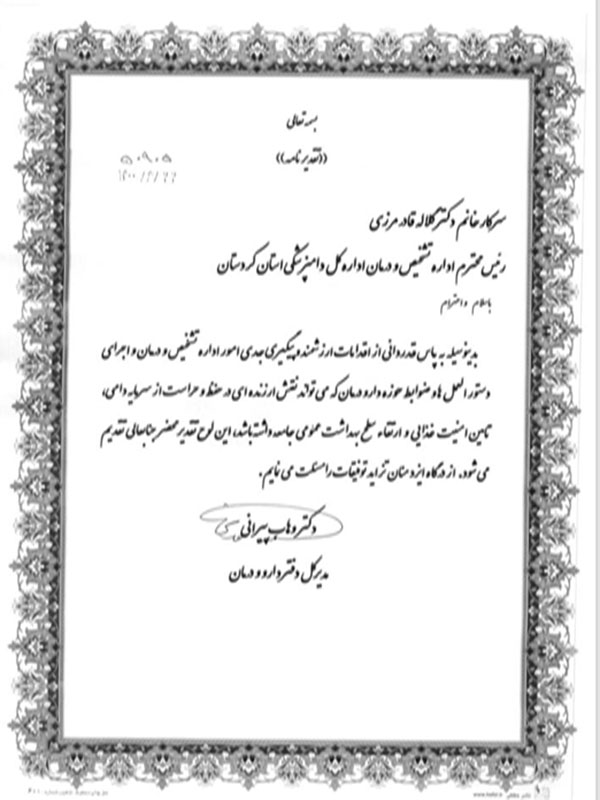 بسمه تعالی
((تقدیر نامه))
۵۰۹۰۵
سرکار خانم دکتر کلاله قادر مرزی
رئیس محترم اداره تشخیص و درمان اداره کل دامپزشکی استان کردستان
باسلام و احترام
بدینوسیله به پاس قدردانی از اقدامات ارزشمند و پیگیری جدی امور اداره تشخیص و درمان و اجرای
دستور العمل ها و ضوابط حوزه دارو درمان که می تواند نقش ارزنده ای در حفظ و حراست از سرمایه دامی،
تامین امنیت غذایی و ارتقاء سطح بهداشت عمومی جامعه داشته باشد، این لوح تقدیر محضر جنابعالی تقدیم
می شود. از درگاه ایزد منان تزاید توفیقات را مسئلت می نمایم.
دکتر وهاب پیرانی
مدیر کل دفتر دارو و درمان